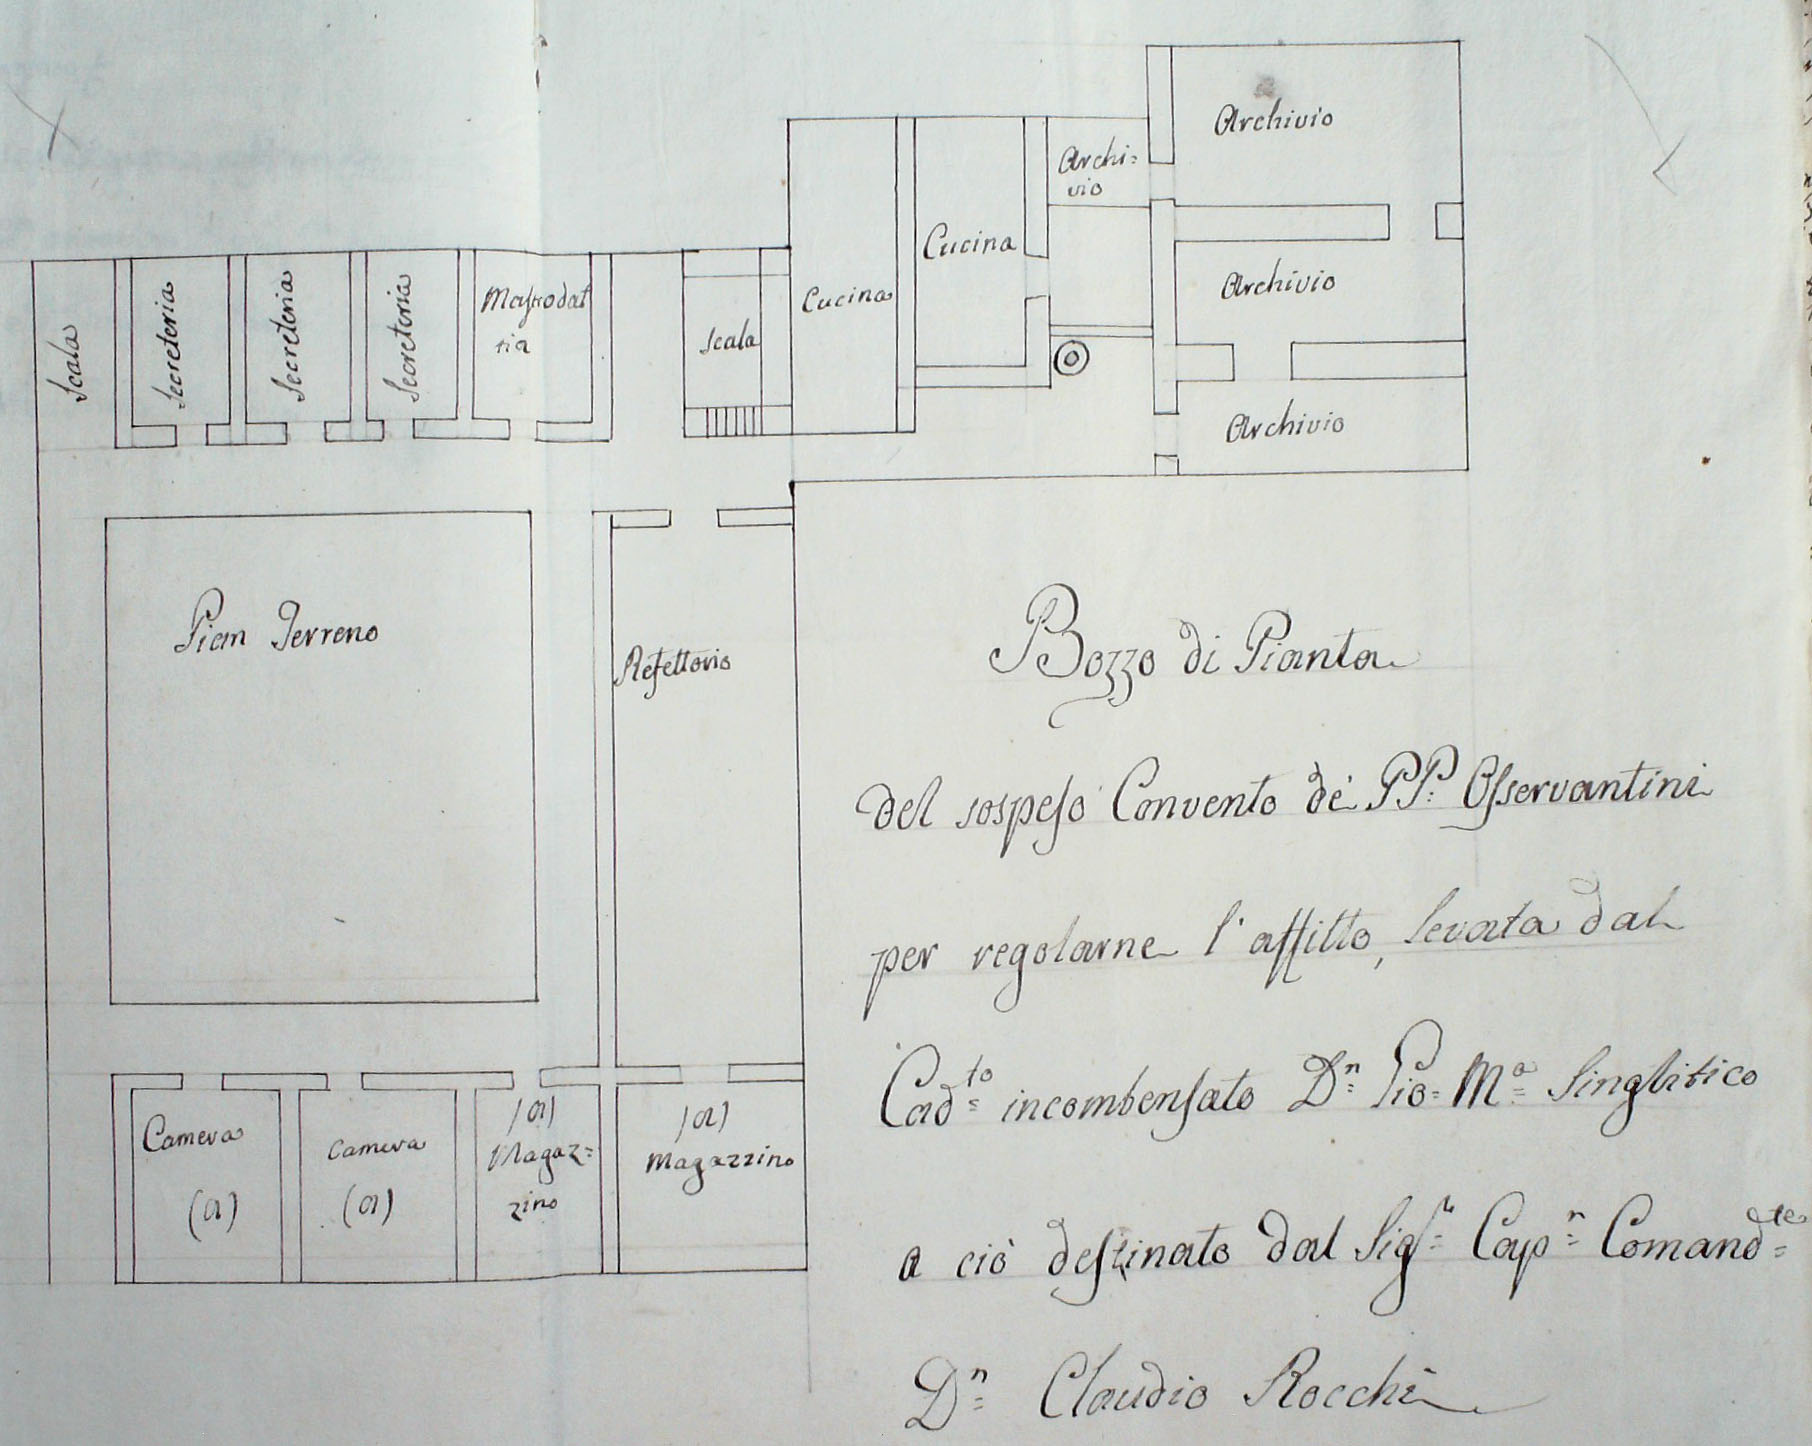 Archivio
Archi=
vio
Cucina
Cucina
Archivio
Scala
Secreteria
Secreteria
Secreteria
Mastrodat
tia
Scala
Archivio
Pian Terreno
Refettorio
Bozzo di Pianta
del sospeso Convento de' PP: Osservantini
per regolarne l'affitto, levata dal
Cad:to incombensato Dn Pio Ma
a ciò destinato dal Sigr Capn Comandte
Dn Claudio Rocchi
Camera
(a)
Camera
(a)
(a)
Magaz=
zino
(a)
Magazzino